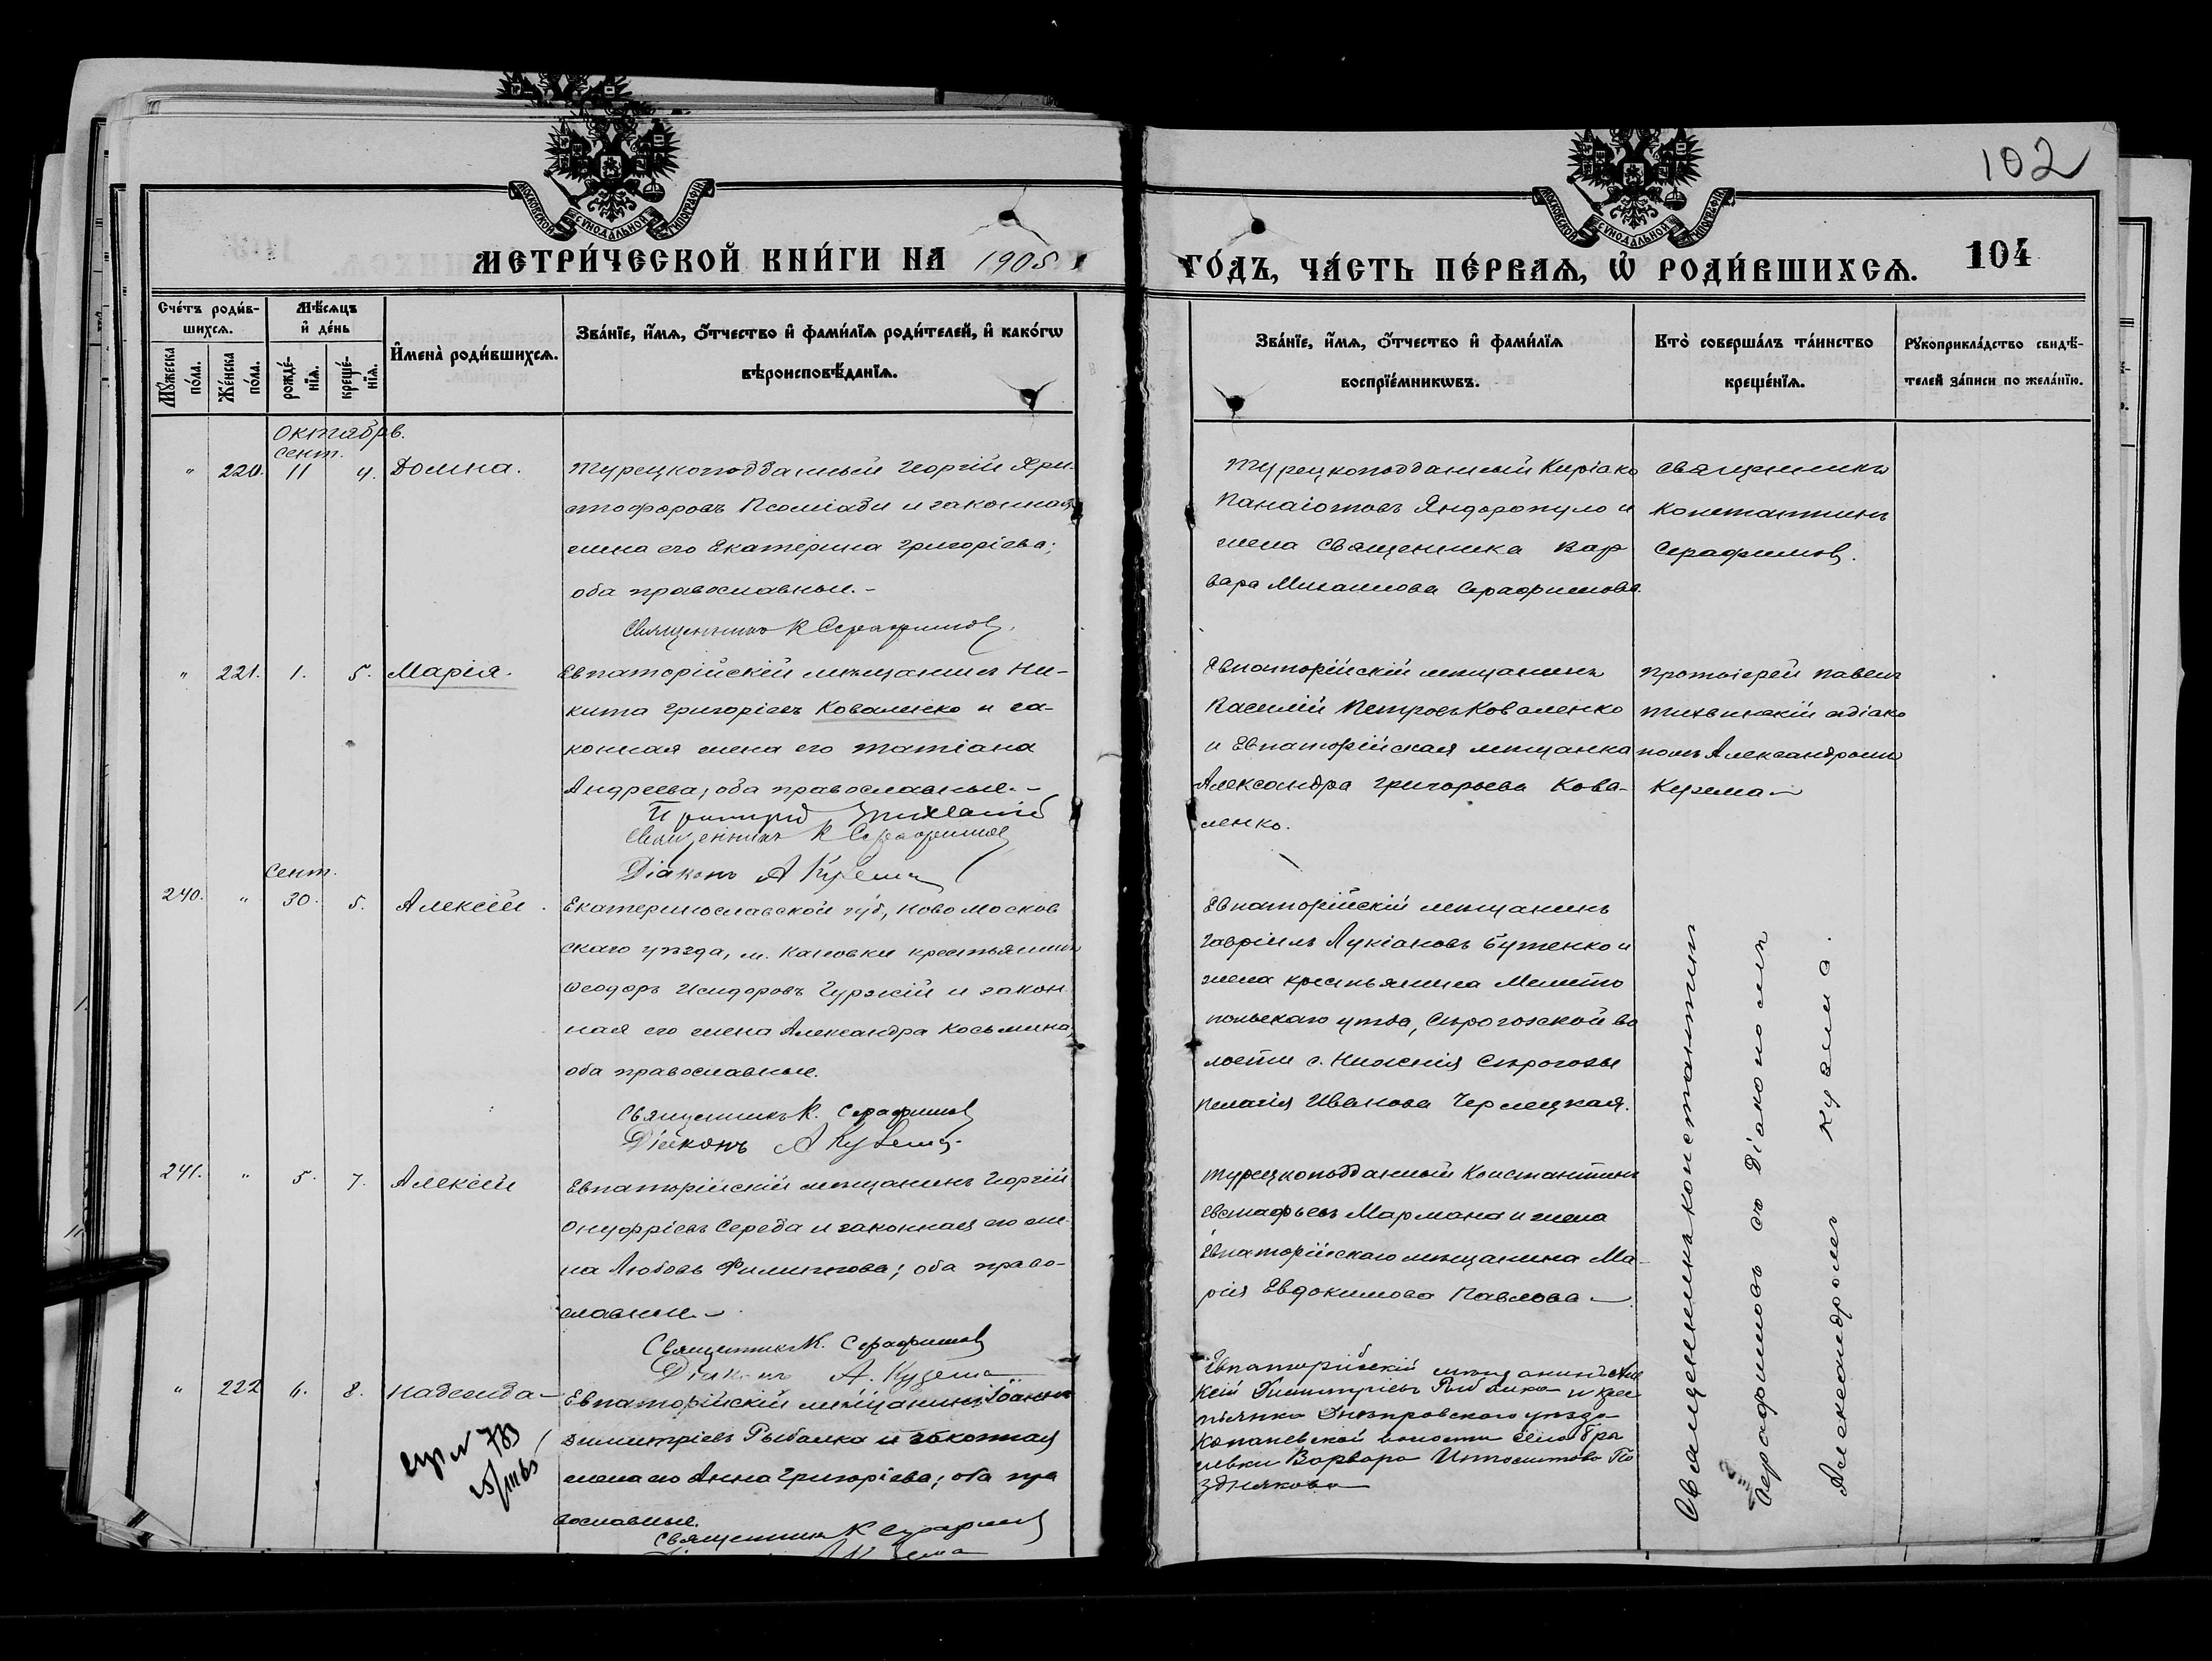 102
МОСКОВСКОЙ СѴНОДАЛЬНОЙ ТИПОГРАФІИ
МОСКОВСКОЙ СѴНОДАЛЬНОЙ ТИПОГРАФІИ
МЕТРИ́ЧЕСКОЙ КНИ́ГИ НА 1905
ГО́ДЪ, ЧА́СТЬ ПЕ́РВАѦ, Ѡ҆ РОДИ́ВШИХСѦ.
104
Сче́тъ роди́в-
шихсѧ.
Мѹ́жеска по́ла.
Же́нска по́ла.
Мѣ́сѧцъ
и҆ де́нь
рожде́-
нїѧ.
креще́-
нїѧ.
И҆мена̀ роди́вшихсѧ.
Зва́нїе, и҆́мѧ, ѻ҆́тчество и҆ фами́лїѧ роди́телей, и҆ како́гѡ
вѣроисповѣ́данїѧ.
Зва́нїе, и҆́мѧ, ѻ҆́тчество и҆ фами́лїѧ
воспрїе́мникѡвъ.
Кто̀ соверша́лъ та́инство
креще́нїѧ.
Рѹкоприкла́дство свидѣ́-
телей за́писи по жела́нїю.
Октябрь.
сент.
" 220. 11 4. Домна.
Турецкоподданный Георгій Хри-
стофоровъ Псоміади и законная
жена его Екатерина Григоріева;
оба православные.-
Священникъ К Серафимов.
Турецкоподданный Киріако
Панаіотовъ Яндоропуло и
жена Священника Вар
вара Михаилова Серафимова.
Священникъ
Константинъ
Серафимов.
" 221. 1. 5. Марія.
Евпаторійскій мѣщанинъ Ни-
кита Григоріевъ Коваленко и за-
конная жена его Татіана
Андреева; оба православные.-
Священникъ К Серафимов
Діаконъ А Кузема
Евпаторійскій мѣщанинъ
Василій Петровъ Коваленко
и Евпаторійская мѣщанка
Александра Григорьева Кова-
ленко.
Протоіерей Павелъ
Тихвинскій с діако
номъ Александромъ
Кузема
сент.
240. " 30. 5. Алексій.
Екатеринославской губ, Новомосков
скаго уѣзда, м. крестьянинъ
Ѳеодоръ Исидоровъ Гуржій и закон
ная его жена Александра Косьмина,
оба православные.
Священникъ К. Серафимов
Діаконъ А Кузема.
Евпаторійскій мѣщанинъ
Гавріилъ Лукіановъ Бутенко и
жена крестьянина Мелито
польскаго уѣзда, Сѣрогозской во
лости с. Нижнія Сѣрогозы
Пелагія Иванова Чернецкая.
241. " 5. 7. Алексій
Евпаторійскій мѣщанинъ Георгій
Онуфріевъ Середа и законная его же-
на Любовь Филиппова; оба право-
славные
Священникъ К. Серафимов
Діаконъ А. Кузема
Турецкоподданный Константинъ
Евстафьевъ Мармана и жена
Евпаторійскаго мѣщанина Ма-
рія Евдокимова Павлова
" 222 6. 8. Надежда
Евпаторійскій мѣщанинъ Іоаннъ
Димитріевъ Рыбалка и законная
жена его Анна Григоріева; оба пра
вославные.
Священникъ К Серафимов
Евпаторійскій мѣщанинъ Але
ксій Димитріевъ Рыбалка и крес
тьянка Днѣпровскаго уѣзда
Варвара Ипполитова По
зднякова
Священникъ Константин
Серафимовъ съ Діакономъ
Александромъ Кузема.